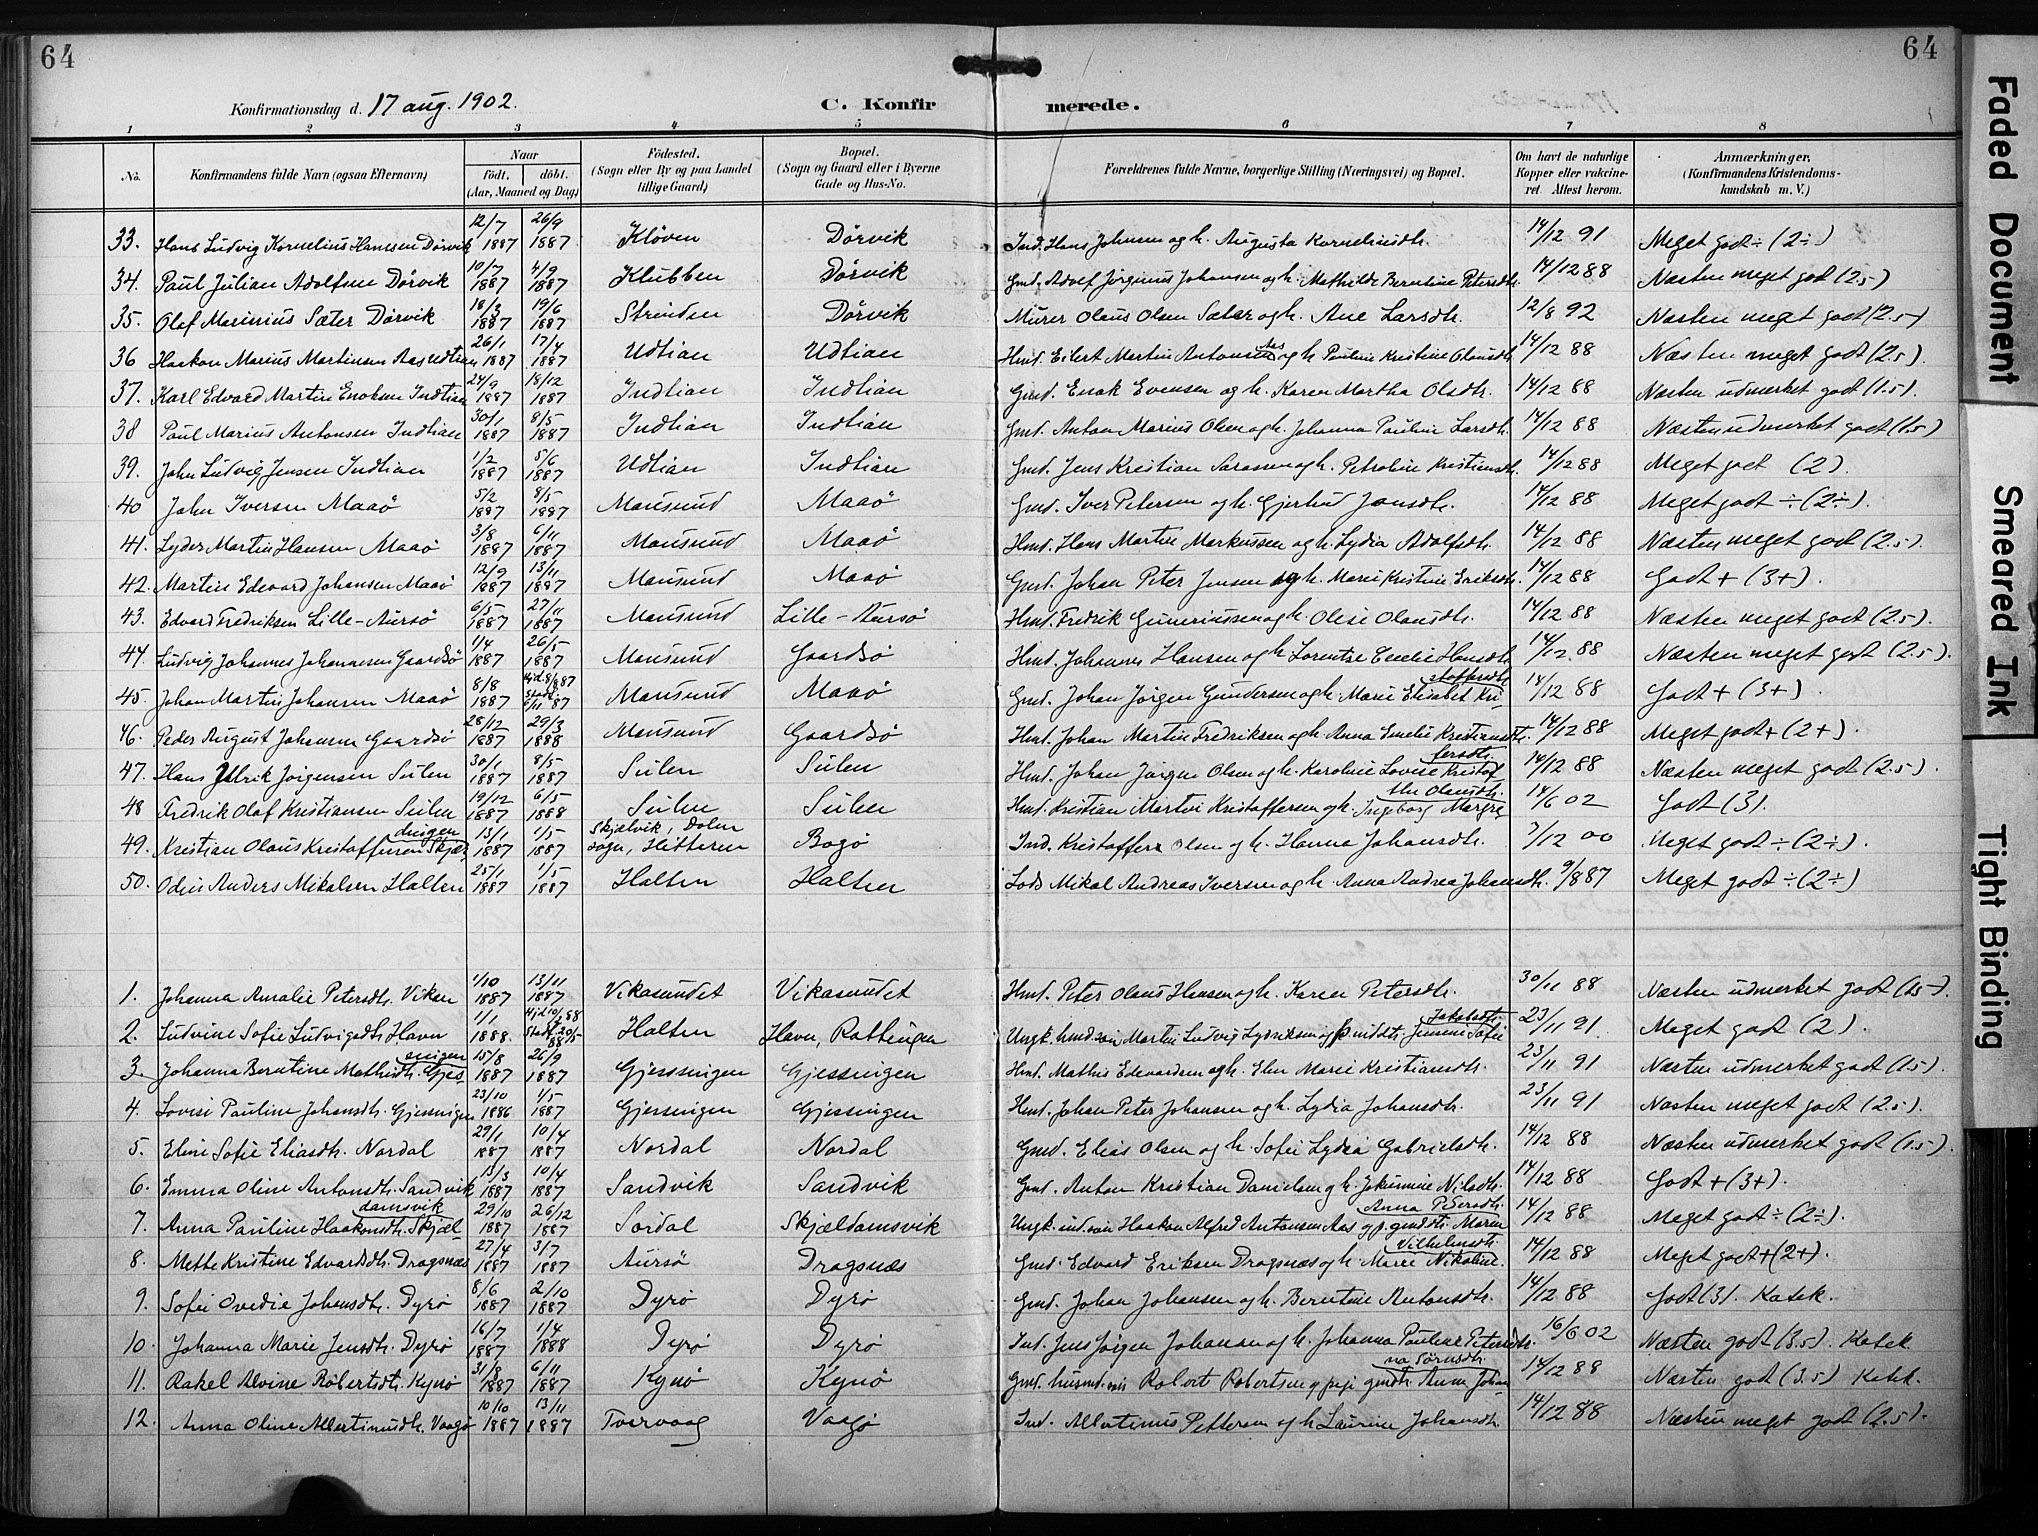 64
64
Konfirmationsdag d. 17 aug. 1902.
C. Konfirmerede.
1 2 3 4 5 6 7 8
No.
Konfirmandens fulde Navn (ogsaa Efternavn)
Naar
födt. döbt.
(Aar, Maaned og Dag)
Födested.
(Sogn eller By og paa Landet
tillige Gaard)
Bopæl.
(Sogn og Gaard eller i Byerne
Gade og Hus-No.
Forældrenes fulde Navne, borgerlige Stilling (Næringsvei) og Bopæl.
Om havt de naturlige
Kopper eller vakcine-
ret. Attest herom.
Anmærkninger.
(Konfirmandens Kristendoms-
kundskab m. V.)
33. Hans Ludvig Kornelius Hansen Dørvik 12/7 1887 26/9 1887 Kløven Dørvik Ind. Hans Johnsen og h. Augusta Korneliusdtr. 14/12 91 Meget godt ÷ (2÷)
34. Paul Julian Adolfsen Dørvik 10/7 1887 4/9 1887 Klubben Dørvik Gmd. Adolf Jørginus Johansen og h. Mathilde Berntine Petersdtr. 14/12 88 Næsten meget godt (2.5)
35. Olaf Marinius Sæter Dørvik 18/3 1887 19/6 1887 Strinden Dørvik Murer Olaus Olsen Sæter og h. Ane Larsdtr. 12/8 92 Næsten meget godt (2.5)
36 Haakon Marius Martinsen Aas Udtian 26/1 1887 17/4 1887 Udtian Udtian Hmd. Eilert Martin Antonsen Aas og h. Pauline Kristine Olausdtr. 14/12 88 Næsten meget godt (2.5).
37. Karl Edvard Martin Enoksen Indtian 24/9 1887 18/12 1887 Indtian Indtian Gmd. Enok Evensen og h. Karen Martha Olsdtr. 14/12 88 Næsten udmerket godt (1.5).
38 Paul Marius Antonsen Indtian 30/1 1887 8/5 1887 Indtian Indtian Gmd. Anton Marius Olsen og h. Johanna Pauline Larsdtr. 14/12 88 Næsten udmerket godt (1.5)
39. John Ludvig Jensen Indtian 1/2 1887 5/6 1887 Udtian Indtian Gmd. Jens Kristian Sarasen og h. Petroline Kristiansdtr. 14/12 88 Meget godt (2).
40 John Iversen Maaø 5/2 1887 8/5 1887 Mausund Maaø Gmd. Iver Petersen og h. Gjertrud Jonsdtr. 14/12 88 Meget godt ÷ (2÷).
41. Lyder Martin Hansen Maaø 3/8 1887 6/11 1887 Mausund Maaø Hmd. Hans Martin Markussen og h. Lydia Adolfsdtr. 14/12 88 Næsten meget godt (2.5).
42. Martin Edevard Johansen Maaø 12/9 1887 13/11 1887 Mausund Maaø Gmd. Johan Peter Jensen og h. Marie Kristine Eriksdtr. 14/12 88 Godt + (3+).
43. Edvard Fredriksen Lille-Aursø 6/5 1887 27/11 1887 Mausund Lille-Aursø Hmd. Fredrik Guneriussen og h. Olise Olausdtr. 14/12 88 Næsten meget godt (2.5).
44. Ludvig Johannes Johannesen Gaardsø 1/4 1887 26/5 1887 Mausund Gaardsø Hmd. Johannes Hansen og h. Lorentze Cecilie Hansdtr. 14/12 88 Næsten meget godt (2.5).
45. Johan Martin Johansen Maaø 8/8 1887 Hjd. 8/8 87 Stadf. 6/11 87 Mausund Maaø Gmd. Johan Jörgen Gundersen og h. Marie Elisabet Kristoffersdtr. 14/12 88 Godt + (3+).
46. Peder August Johansen Gaardsø 28/12 1887 29/3 1888 Mausund Gaardsø Hmd. Johan Martin Fredriksen og h. Anna Emelie Kristiansdtr. 14/12 88 Meget godt + (2+).
47. Hans Ulrik Jørgensen Sulen 30/1 1887 8/5 1887 Sulen Sulen Hmd. Johan Jørgen Olsen og h. Karoline Lovise Kristoffersdtr. 14/12 88 Næsten meget godt (2.5).
48 Fredrik Olaf Kristiansen Sulen 19/12 1887 6/5 1888 Sulen Sulen Hmd. Kristian Martin Kristoffersen og h. Ingeborg Margrethe Olausdtr. 14/6 02 Godt (3).
49. Kristian Olaus Kristoffersen 13/1 1887 1/5 1887 Skjælvik, Dolm Sogn, Hitteren Bogø Ind. Kristoffer Olsen og h. Hanna Johansdtr. 3/12 00 Meget godt ÷ (2÷).
50. Odin Anders Mikalsen Halten 25/1 1887 1/5 1887 Halten Halten Lods Mikal Andreas Iversen og h. Anna Andrea Johansdtr. 9/8 87 Meget godt ÷ (2÷)
1. Johanna Amalie Petersdtr. Vikan 1/10 1887 13/11 1887 Vikasundet Vikasundet Hmd. Peter Olaus Hansen og h. Karen Petersdtr. 30/11 88 Næsten udmerket godt (1.5).
2. Ludvine Sofie Ludvigsdtr. Havn 1/1 1888. Hjd. 10/2 88 Stadf. 20/5 88 Halten Havn, Rottingen Ungk. Martin Ludvig Lydriksen Jensine Sofie Jakobsdtr. 23/11 91. Meget godt (2).
3. Johanna Berntine Mathisdtr. Gjessingen 15/8 1887 26/9 1887 Gjessingen Gjessingen Hmd. Mathis Edevardsen og h. Elen Marie Kristiansdtr. 23/11 91 Næsten udmerket godt (1.5).
4. Lovise Pauline Johansdtr. Gjessingen 23/10 1886 1/5 1887 Gjessingen Gjessingen Hmd. Johan Peter Johansen og h. Lydia Johansdtr. 23/11 91 Næsten meget godt (2.5).
5. Eline Sofie Eliasdtr. Nordal 29/1 1887 10/4 1887 Nordal Nordal Gmd. Elias Olsen og h. Sofie Lydia Gabrielsdtr. 14/12 88 Næsten udmerket godt (1.5).
6. Emma Oline Antonsdtr. Sandvik 13/3 1887 10/4 1887 Sandvik Sandvik Gmd. Anton Kristian Danielsen og h. Jokumine Nilsdtr. 14/12 88 Godt + (3+).
7. Anna Pauline Haakonsdtr. Skjældamsvik 29/10 1887 26/12 1887 Sørdal Skjældamsvik Ungk. Haakon Alfred Antonsen Aas og p. gmdtr. Maren Anna Pedersdtr. 14/12 88 Meget godt ÷ (2÷).
8. Mette Kristine Edvardsdtr. Dragsnæs 27/4 1887 3/7 1887 Aursø Dragsnæs Gmd. Edvard Eriksen Dragsnæs og h. Maren Nikoline Vilhelmsdtr. 14/12 88 Meget godt + (2+).
9. Sofie Ovedie Johansdtr. Dyrø 8/6 1887 2/10 1887 Dyrø Dyrø Gmd. Johan Johansen og h. Berntine Antonsdtr. 14/12 88 Godt (3). Katek.
10. Johanna Marie Jensdtr. Dyrø 16/7 1887 1/4 1888 Dyrø Dyrø Ind. Jens Jörgen Johansen og h. Johanna Pauline Petersdtr. 16/6 02 Næsten godt (3.5). Katek.
11. Rakel Alvine Robertsdtr. Kynø 31/8 1887 6/11 1887 Kynø Kynø Gmd. Robert Robertsen og pige Anna Johanna Sörnsdtr. 14/12 88 Næsten godt (3.5) Katek.
12. Anna Oline Albertinusdtr. Vaagø 10/10 1887 13/11 1887 Tvervaag Vaagø Ind. Albertinus Pettersen og h. Laurine Johansdtr. 14/12 88 Næsten meget godt (2.5).
Faded Document
Smeared Ink
Tight Binding